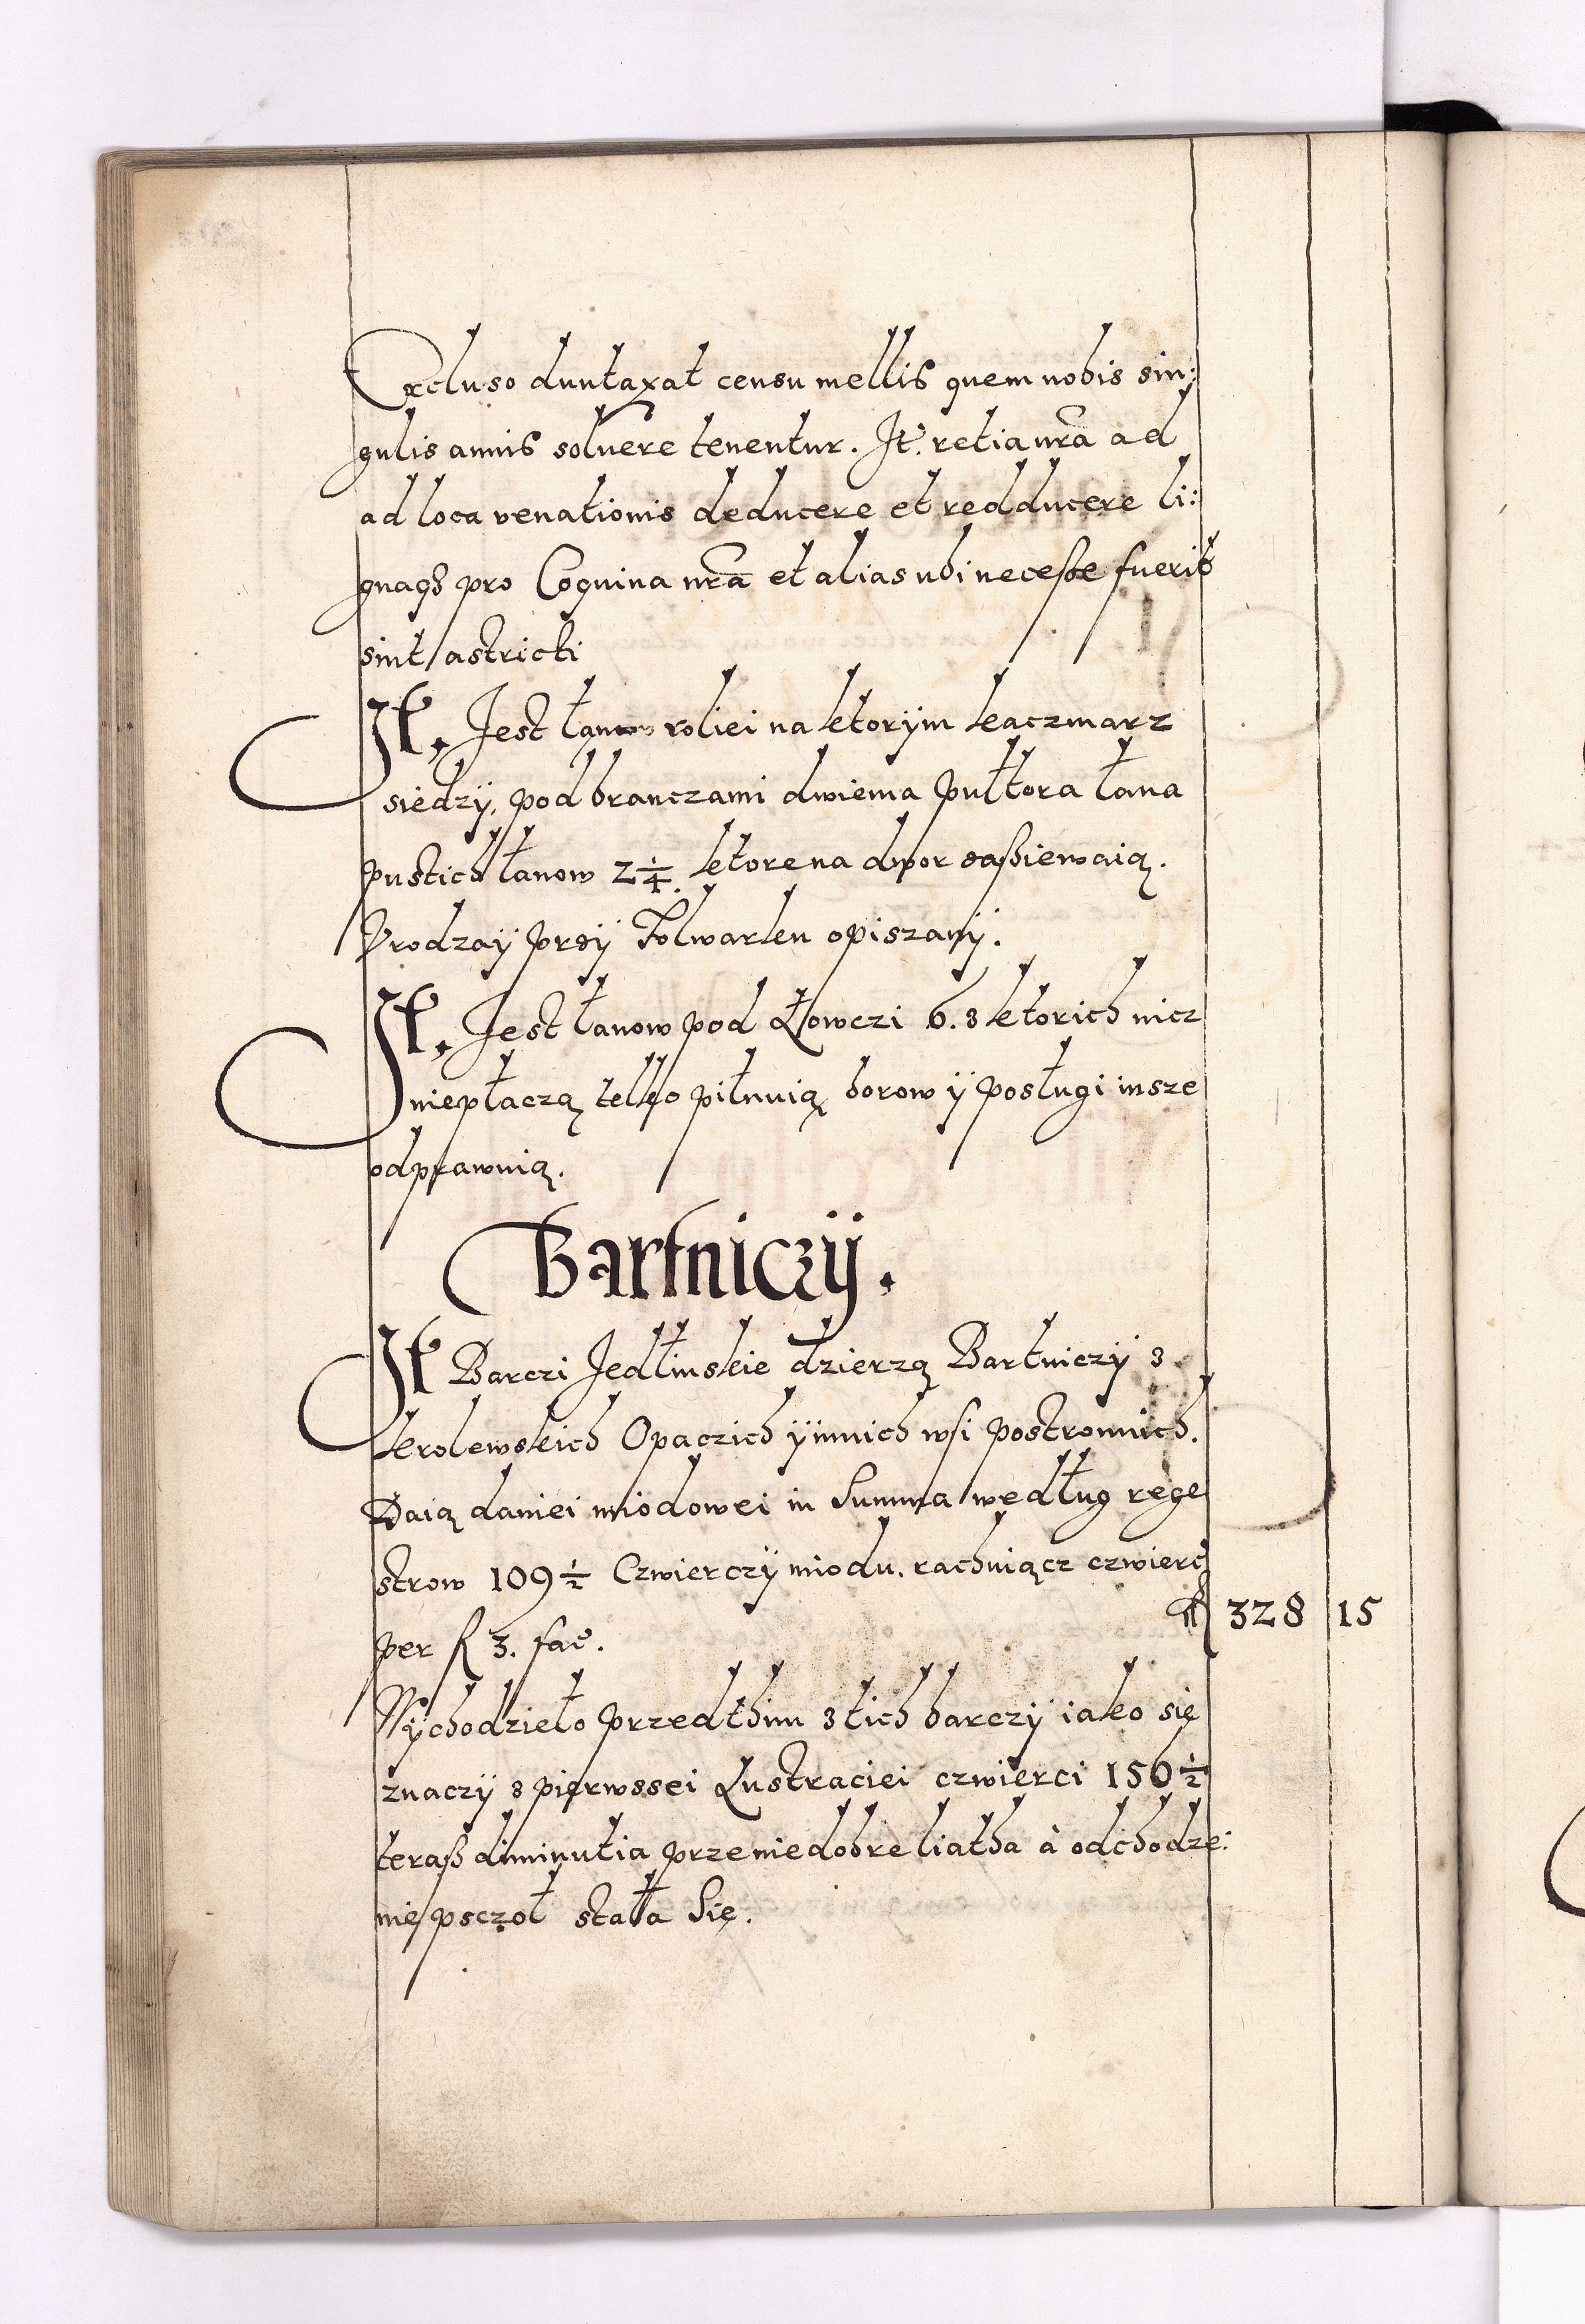 Excluso duntaxat censu mellis quem nobis sin:
gulis annis soluere tenentur. It. retia nrã ad
ad loca venationis deducere et redducere li:
gnaqз pro Coquina nrã et alias ubi necesse fuerit
sint astricti
It. Jest łanow roliei na ktorÿm kaczmarz
siedzÿ, pod branczami dwiema pułtora łana
pustich łanow 2 1/4. ktore na dwor zaßiewaią.
Vrodzaÿ przÿ Folwarku opiszanÿ.
It. Jest łanow pod Łowczi 6. z ktorich nicz
niepłaczą telko pilnuią borow ÿ posługi insze
odprawuią.
Bartniczÿ.
It Barczi Jedlinskie dzierzą Bartniczÿ z
krolewskich Opaczich ÿ innich wsi postronnich.
Daią daniei miodowei in Summa według rege
strow 109 1/2 Czwierczÿ miodu. rachuiącz czwierć
per fl 3. fac. fl 328 15
Wÿchodzieło przedthim z tich barczÿ iako się
znaczÿ z pierwssei Lustraciei czwierci 156 1/2
teraß diminutia prze niedobre liatha à odchodze:
nie psczoł stała Się.